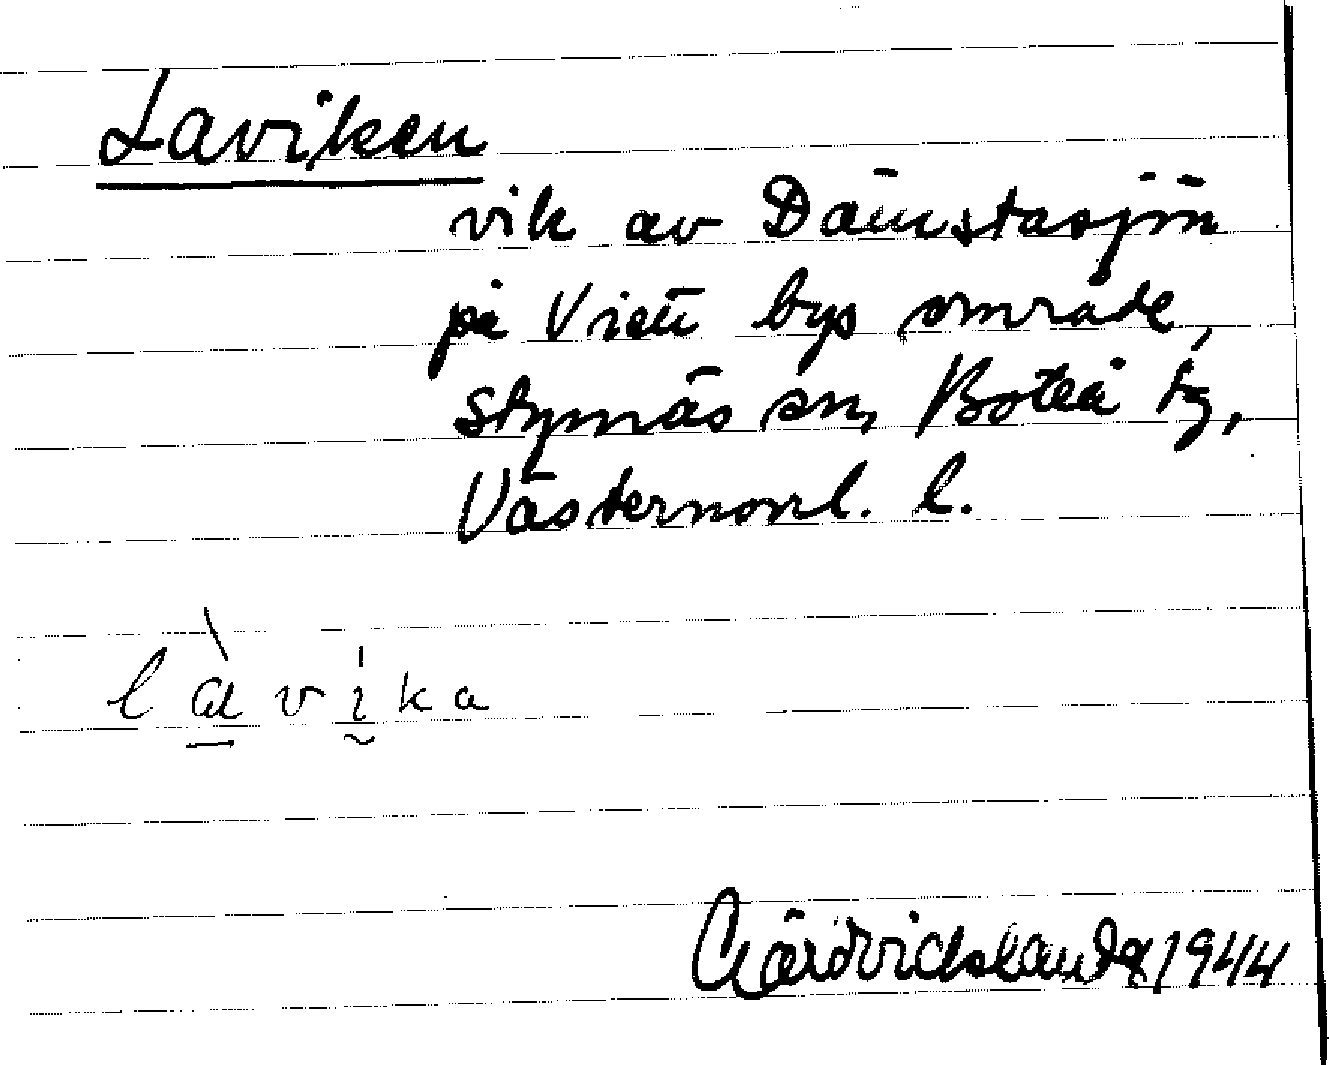 Laviken
vik av Dämstasjön
på Vien bys område,
Styrnäs sn, Boteå tg,
Västernorrl. l.
l à v i k a
Gärdvidslanda 1944